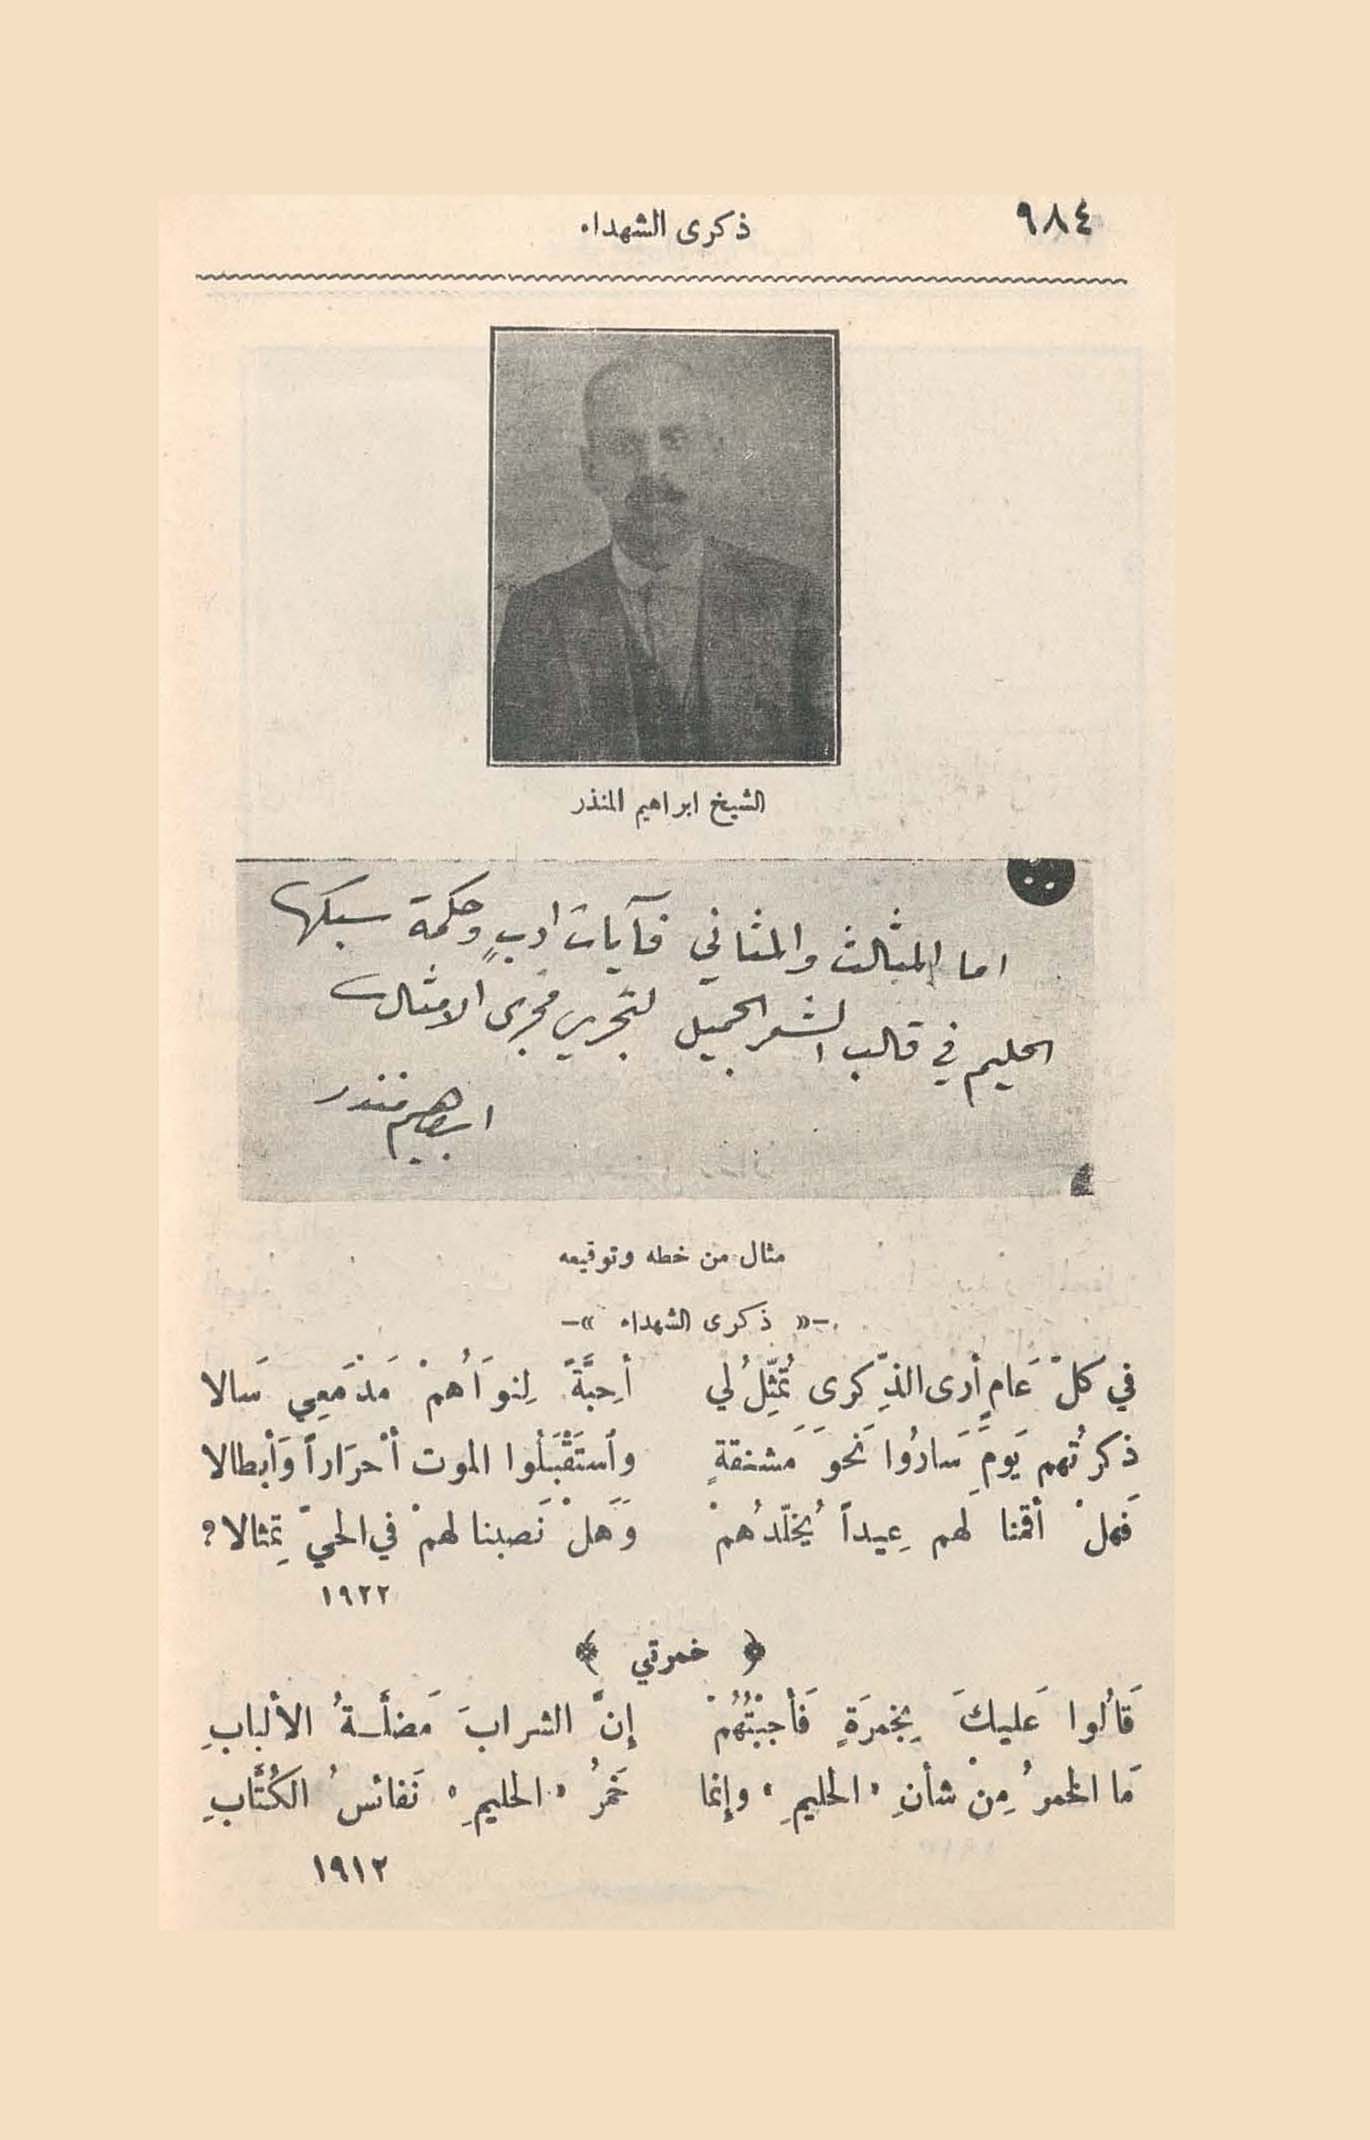 ٩٨٤
ذكرى الشهداء
الشيخ ابراهيم المنذر
اما المثالث والمثاني فآيات ادبٍ وحكمة سبكها
الحليم في قالب الشعر الجميل لتجري مجرى الامثال
ابراهيم منذر
مثال من خطه وتوقيعه
-« ذكرى الشهداء »-
في كلّ عَامٍ أرى الذِّكرى تُمثِّلُ لي أحِبَّةً لِنوَاهُمْ مَدْمَعِي سَالا
ذكرتُهم يَومَ سَارُوا نَحوَ مَشنقةٍ وأستَقْبَلُوا الموت أحْرَاراً وَأبطالا
فَهلْ أقمنا لهم عِيداً يُخلّدُهمْ وَهَلْ نَصبنا لهمْ في الحيّ تِمثالا؟
١٩٢٢
﴿ خمرتي ﴾
قَالُوا عَليكَ بِخمرَةٍ فَأجبْتُهُمْ إنَّ الشرابَ مَضلَّةُ الألبابِ
مَا الخمرُ مِنْ شأنِ «الحليمِ» وإنما خَمرُ «الحليمِ» نَفائسُ الكُتَّابِ
١٩١٢